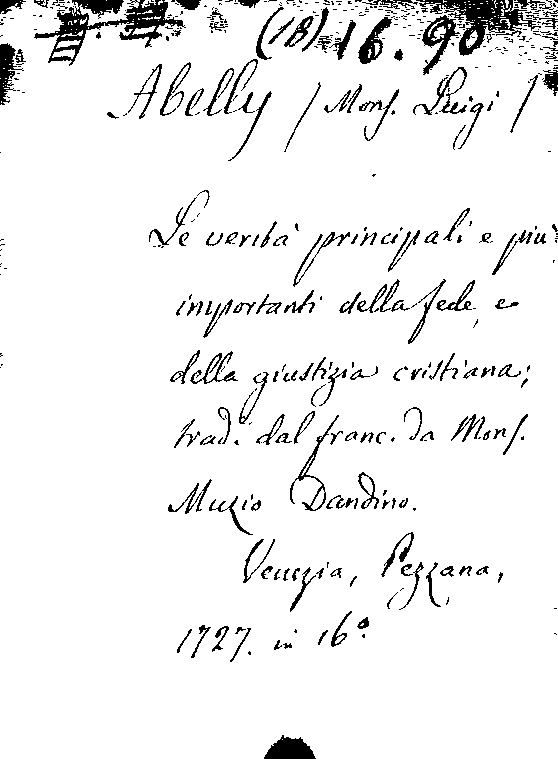 (18) 16. 90
Abelly / Monſ. Luigi /
Le verità principali e più
importanti della fede, e
della giustizia cristiana;
trad. dal franc. da Monſ.
Muzio Dandino.
Venezia, Pezzana,
1727. in 16º